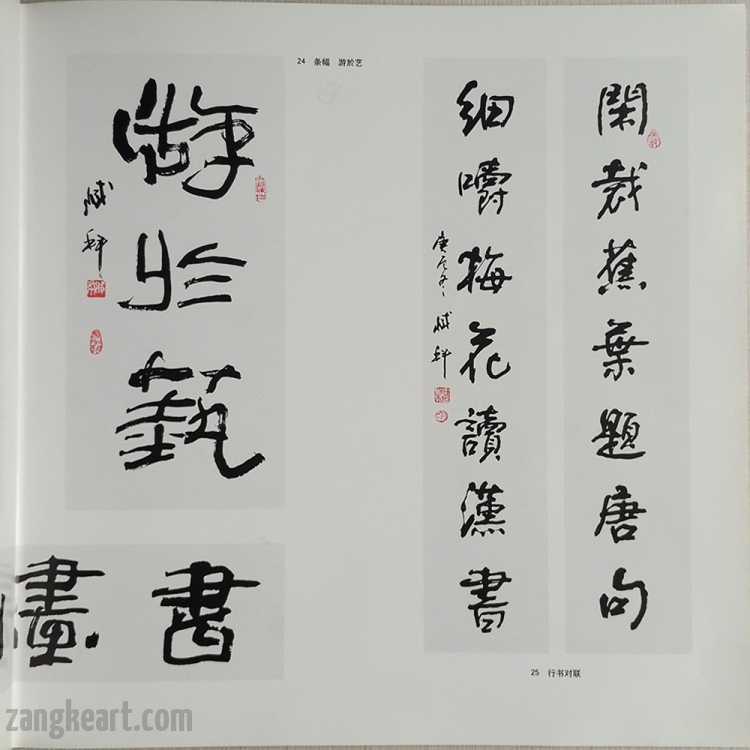 24 条幅 游於艺
游於藝
閑裁蕉葉題唐句
細嚼梅花讀漢書
庚辰冬
25 行书对联
書畫
zangkeart.com